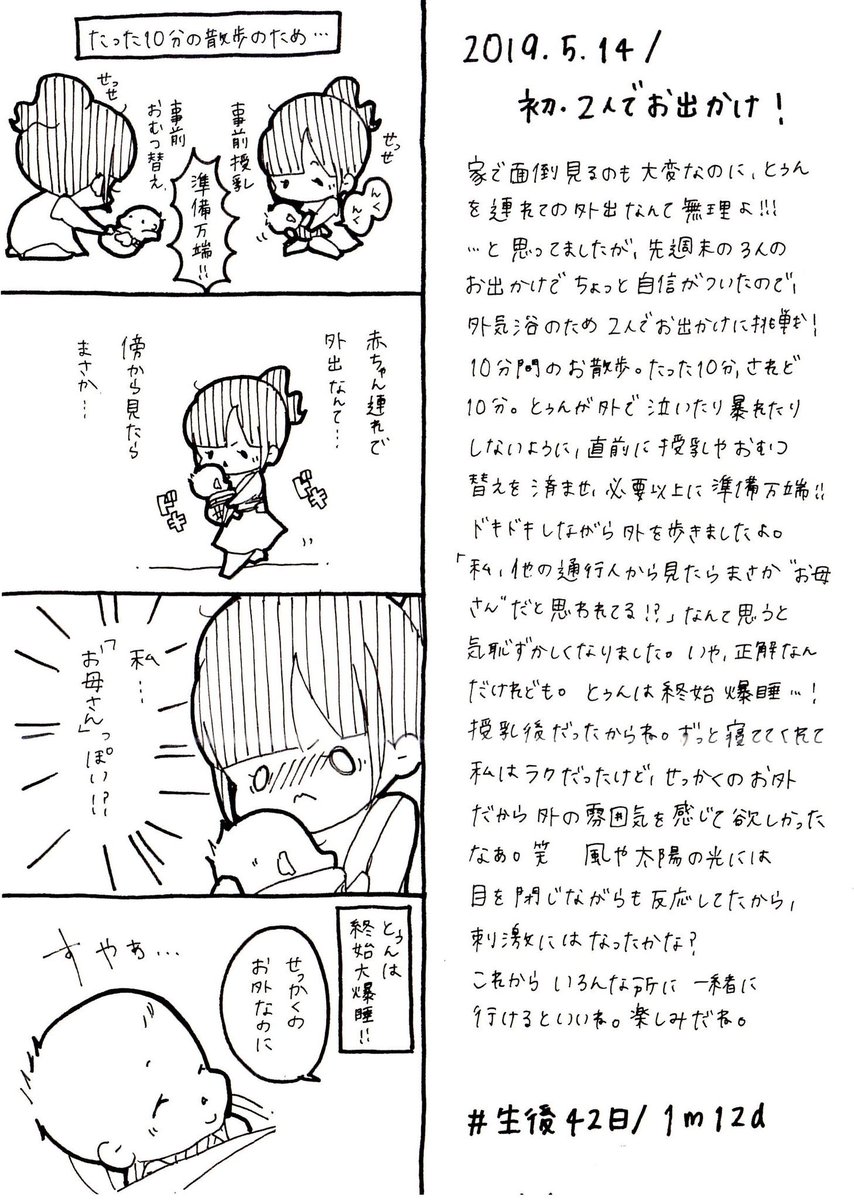 たった10分の散歩のため…
せっせ
事前授乳
んく
んく
準備万端!!
事前
おむつ替え
せっせ
赤ちゃん連れで
外出なんて…
傍から見たら
まさか…
ドキ
ドキ
私…
「お母さん」っぽい!?
とぅんは
終始大爆睡!!
せっかくの
お外なのに
すやぁ…
2019.5.14/
初・2人でお出かけ!
家で面倒見るのも大変なのに、とぅん
を連れての外出なんて無理よ!!!
…と思ってましたが、先週末の3人の
お出かけでちょっと自信がついたので、
外気浴のため2人でお出かけに挑戦!
10分間のお散歩。たった10分、されど
10分。とぅんが外で泣いたり暴れたり
しないように、直前に授乳やおむつ
替えを済ませ、必要以上に準備万端!!
ドキドキしながら外を歩きましたよ。
「私、他の通行人から見たらまさか“お母
さん”だと思われてる!?」なんて思うと
気恥ずかしくなりました。いや、正解なん
だけれども。とぅんは終始爆睡…!
授乳後だったからね。ずっと寝ててくれて
私はラクだったけど、せっかくのお外
だから外の雰囲気を感じて欲しかった
なぁ。笑 風や太陽の光には
目を閉じながらも反応してたから、
刺激にはなったかな?
これからいろんな所に一緒に
行けるといいね。楽しみだね。
#生後42日/1m12d